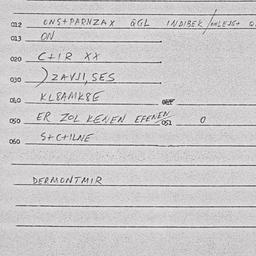 012 ONS+PARNZAX GGL INDIBEK
013 ON
020 C+IR XX
030 ) ZAVJI, SES
040 KL8AMK8E
050 ER ZOL KENEN EFENEN 051 0
060 S+C+ILNE
DERMONTMIR